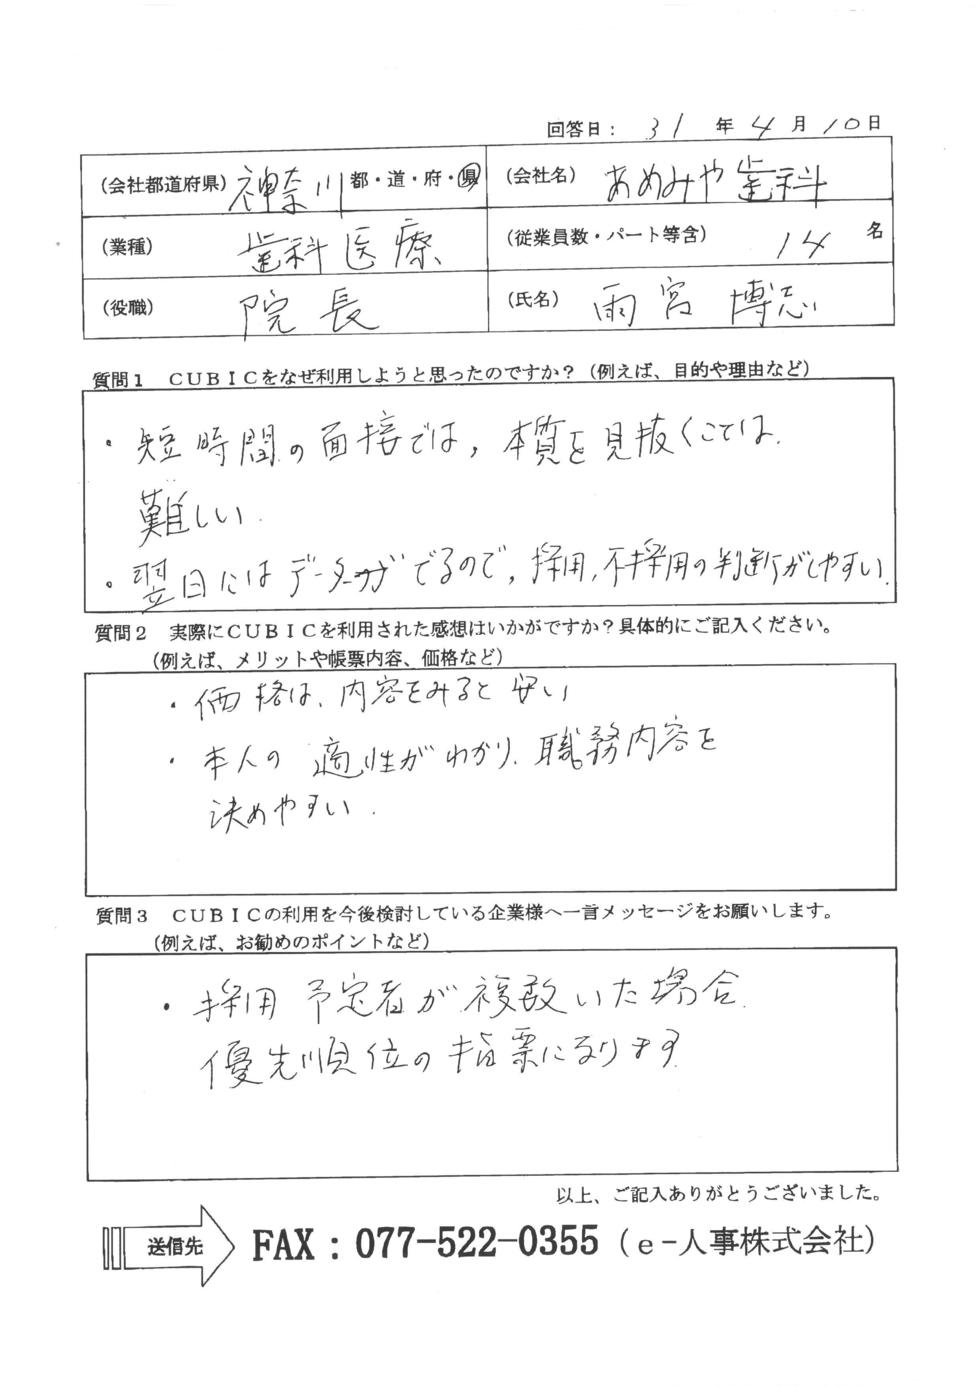 回答日： 31 年 4 月 10 日
(会社都道府県) 神奈川 都・道・府・県 (会社名) あめみや歯科
(業種) 歯科医療 (従業員数・パート等含) 14 名
(役職) 院長 (氏名) 雨宮 博志
質問１　ＣＵＢＩＣをなぜ利用しようと思ったのですか？（例えば、目的や理由など）
・短時間の面接では、本質を見抜くことは
難しい.
・翌日にはデーターがでるので、採用、不採用の判断がしやすい.
質問２　実際にＣＵＢＩＣを利用された感想はいかがですか？具体的にご記入ください。
（例えば、メリットや帳票内容、価格など）
・価格は、内容をみると安い
・本人の適性がわかり、職務内容を
決めやすい.
質問３　ＣＵＢＩＣの利用を今後検討している企業様へ一言メッセージをお願いします。
（例えば、お勧めのポイントなど）
・採用予定者が複数いた場合.
優先順位の指票になります.
以上、ご記入ありがとうございました。
送信先 FAX：077-522-0355（ｅ－人事株式会社）